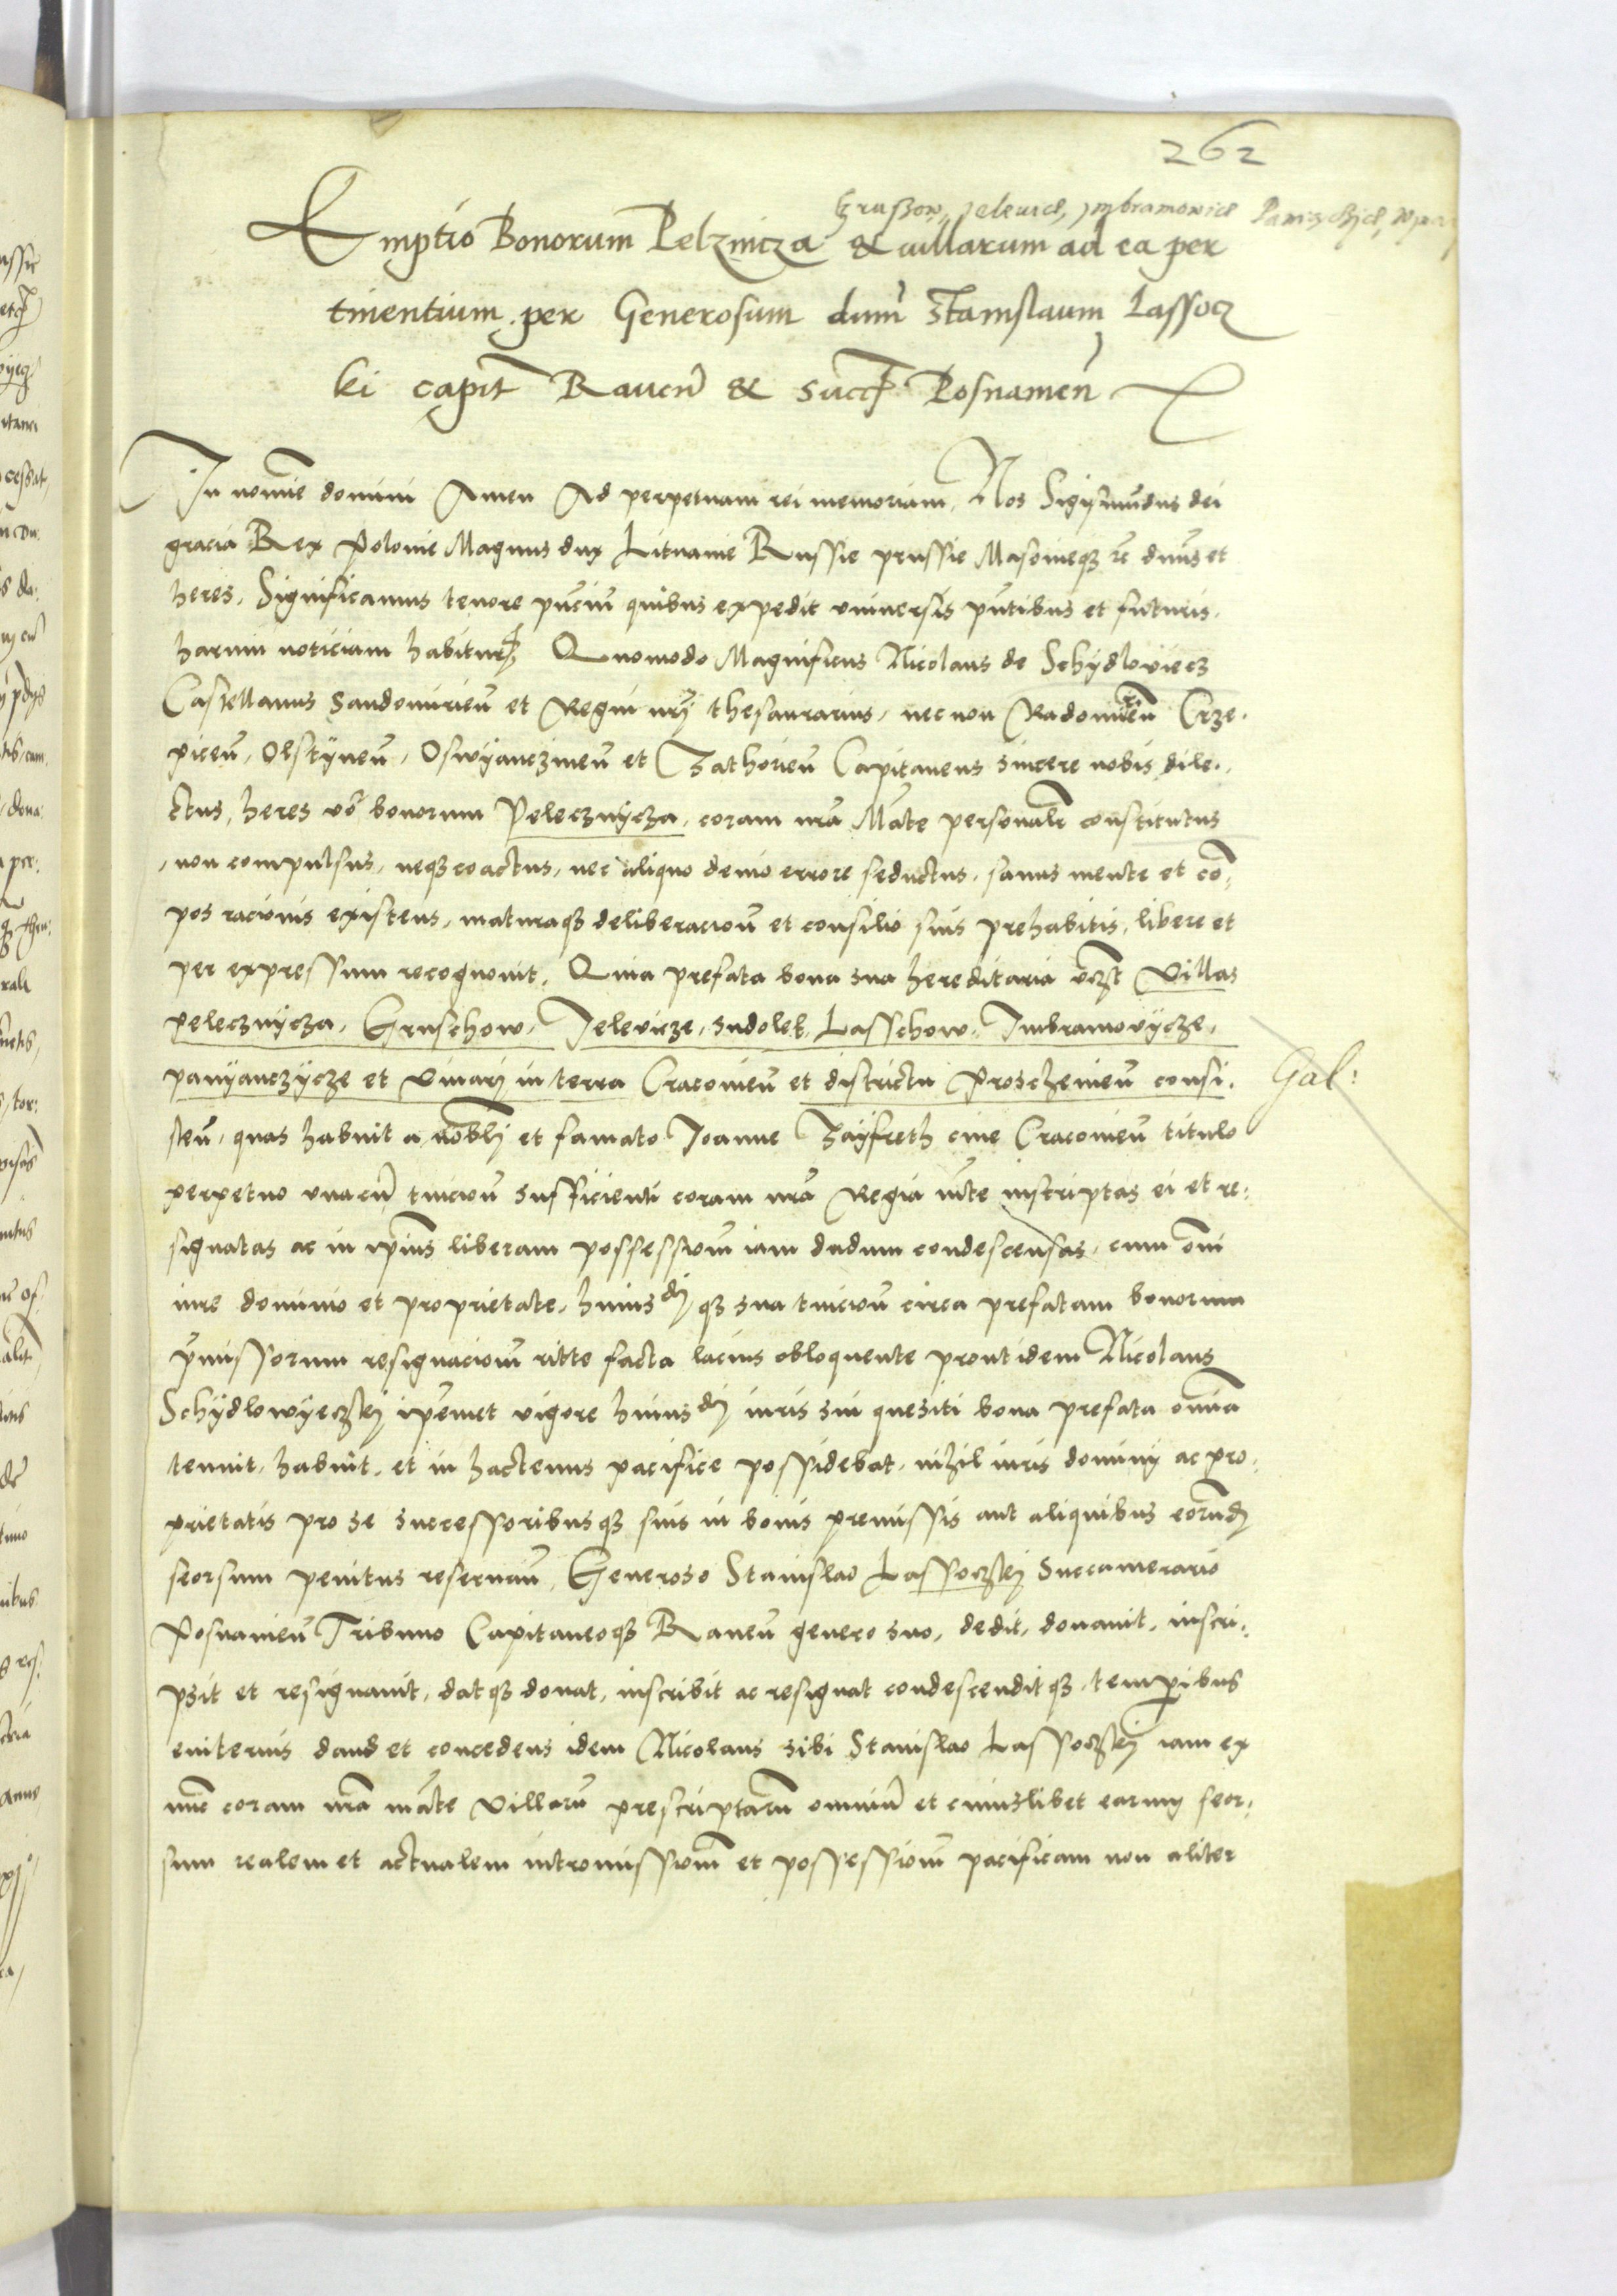 262
Gruszow, Jelevicze, Imbramowice
Emptio Bonorum Pelznicza & villarum ad ea per
tinentium per Generosum dnm̃ Stanislaum Lassoc
ki capit Raven̄ & Succ Posnanien̄
In nomīe domini Amen Ad perpetuam rei memoriam, Nos Sigismūdus dei
gracia Rex Polonie Magnus dux Lituanie Russie prussie Masovieqȝ rē dnūs et
heres, Significamus tenore pn̄ciū quibus expedit universis pn̄tibus et futuris,
harum noticiam habitur, Quomodo Magnificus Nicolaus de Schydloviecz
Castellanus Sandomirien̄ et Regni nr̄j thesaurarius, nec non Radomien̄ Crze-
picen̄, Olstÿnen̄, Oswÿanczimen̄ et Zathorien̄ Capitaneus sincere nobis dile-
ctus, heres vō bonorum Pelecznÿcza, coram nr̄a M̄ate personalr̄ constitutus
, non compulsus, neqȝ coactus, nec aliquo devio errore seductus, sanus mente et cō-
pos racionis existens, maturaqȝ deliberacioū et consilio suis prehabitis, libere et
per expressum recognovit, Quia prefata bona sua hereditaria vczt Villas
pelecznÿcza, Gruschow, Jelevicze, Sudolek, Lasschow, Imbramovÿcze,
panÿanczÿcze et Vinarj in terra Cracovien̄ et districtu Proschevien̄ consi-
Gal:
sten̄, quas habuit a nōblj et famato Joanne Zaÿfreth cive Cracovien̄ titulo
perpetuo unacū tuicioū sufficienti coram nr̄a Regia m̄te inscriptas ei et re-
signatas ac in ip̄ius liberam possessioūm iam dudum condescensas, cum om̄i
iure dominio et proprietate, huiusdj qȝ sua tuicioū circa prefatam bonorum
p̄missorum resignacioūm ritte facta lacius obloquente prout idem Nicolaus
Schÿdlowÿeczkj ip̄emet vigore huiusdj iuris sui quesiti bona prefata om̄ia
tenuit, habuit, et in hactenus pacifice possidebat, nihil iuris dominÿ ac pro-
prietatis pro se successoribusqȝ suis in bonis premissis aut aliquibus eorūdj
seorsum penitus reservan̄, Generoso Stanislao Lassoczkj Succamerario
Posnanien̄ Tribuno Capitaneoqȝ Raven̄ genero suo, dedit, donavit, inscri-
psit et resignavit, datqȝ donat, inscribit ac resignat condescenditqȝ temp̄ibus
eviternis dand et concedens idem Nicolaus sibi Stanislao Lassoczkj iam ex
nūc coram nr̄a m̄ate Villarū prescriptarū omniū et cuiuslibet earum seor-
sum realem et actualem intromissioūm et possessioūm pacificam non aliter